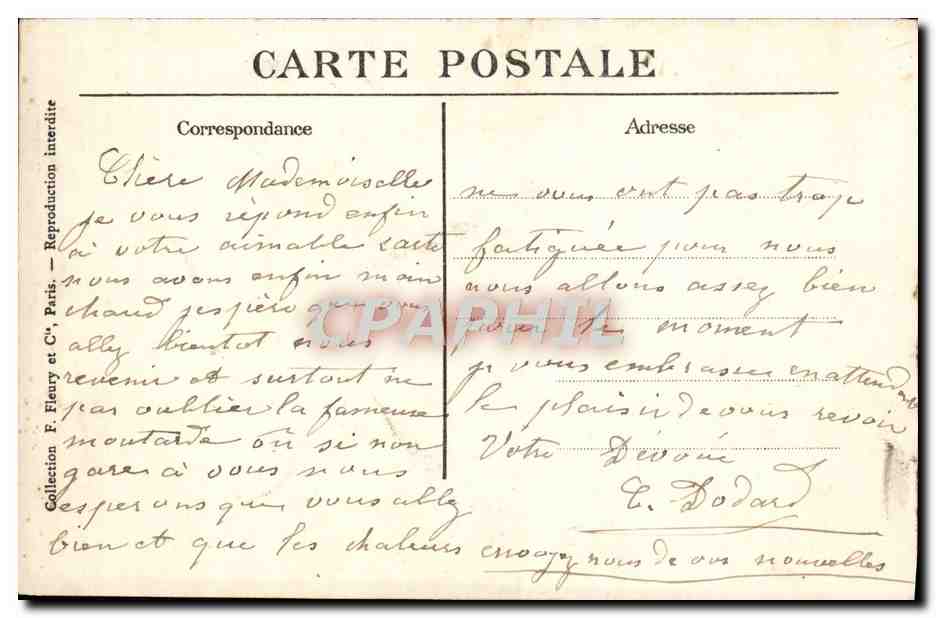 CARTE POSTALE
Correspondance
Chère Mademoiselle
je vous répond enfin
à votre aimable carte
nous avons enfin main
chaud jespère que vous
allez bientot nous
revenir et surtout ne
pas oublier la fameuse
moutarde ou si non
gare à vous nous
esperons que vous allez
bien et que les chaleurs
Adresse
ne vous ont pas trop
fatiguée pour nous
nous allons assez bien
pour le moment
je vous embrasse en attendant
le plaisir de vous revoir
Votre Dévoué
E. Dodard
envoyez nous de vos nouvelles
Collection F. Fleury et Cie, Paris. — Reproduction interdite
CPAPHIL